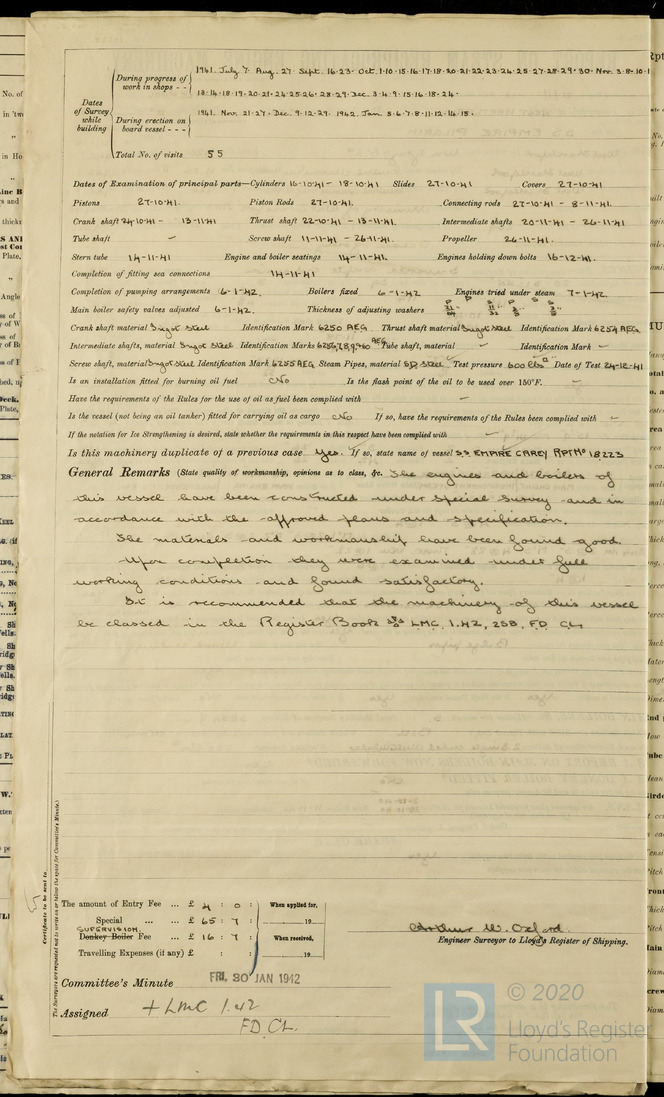 Dates of Survey while building
During progress of work in shops - - 1941. July 7. Aug. 27. Sept. 16. 23. Oct. 1. 10. 15. 16. 17. 18. 20. 21. 22. 23. 24. 25. 27. 28. 29. 30. Nov. 3. 8. 10. 1
13. 14. 18. 19. 20. 21. 24. 25. 26. 28. 29. Dec. 3. 4. 9. 15. 16. 18. 24.
During erection on board vessel - - - 1941. Nov. 21. 27. Dec. 9. 12. 29. 1942. Jan. 5. 6. 7. 8. 11. 12. 14. 15.
Total No. of visits 55
Dates of Examination of principal parts—Cylinders 16-10-41 - 18-10-41 Slides 27-10-41 Covers 27-10-41
Pistons 27-10-41. Piston Rods 27-10-41. Connecting rods 27-10-41 - 8-11-41.
Crank shaft 24-10-41 - 13-11-41 Thrust shaft 22-10-41 - 13-11-41. Intermediate shafts 20-11-41 - 26-11-41.
Tube shaft — Screw shaft 11-11-41 - 26-11-41. Propeller 26-11-41.
Stern tube 14-11-41 Engine and boiler seatings 14-11-41. Engines holding down bolts 16-12-41.
Completion of fitting sea connections 14-11-41
Completion of pumping arrangements 6-1-42. Boilers fixed 6-1-42 Engines tried under steam 7-1-42.
Main boiler safety valves adjusted 6-1-42. Thickness of adjusting washers
Crank shaft material Ingot Steel Identification Mark 6250 AEG Thrust shaft material Ingot Steel Identification Mark 6254 AEG
Intermediate shafts, material Ingot Steel Identification Marks AEG Tube shaft, material — Identification Mark —
Screw shaft, material Ingot Steel Identification Mark 6255 AEG Steam Pipes, material SD Steel Test pressure 600 lbs □" Date of Test 24-12-41
Is an installation fitted for burning oil fuel No Is the flash point of the oil to be used over 150°F. —
Have the requirements of the Rules for the use of oil as fuel been complied with —
Is the vessel (not being an oil tanker) fitted for carrying oil as cargo No If so, have the requirements of the Rules been complied with —
If the notation for Ice Strengthening is desired, state whether the requirements in this respect have been complied with —
Is this machinery duplicate of a previous case Yes. If so, state name of vessel S.S. EMPIRE CAREY RPT No 18223
General Remarks (State quality of workmanship, opinions as to class, &c. The engines and boilers of
this vessel have been constructed under special survey and in
accordance with the approved plans and specification.
The materials and workmanship have been found good.
Upon completion they were examined under full
working conditions and found satisfactory.
It is recommended that the machinery of this vessel
be classed in the Register Book LMC. 1.42, 2SB, F.D. CL
Certificate to be sent to
The Surveyors are requested not to write on or below the space for Committee's Minute.
The amount of Entry Fee ... £ 4 : 0 : When applied for,
Special ... ... £ 65 : 7 : 19
SUPERVISION
Donkey Boiler Fee ... £ 16 : 7 : When received,
Travelling Expenses (if any) £ : : 19
Arthur W. Oxford.
Engineer Surveyor to Lloyd's Register of Shipping.
Committee's Minute FRI. 30 JAN 1942
Assigned + LMC 1.42
FD. CL.
© 2020
Lloyd's Register
Foundation